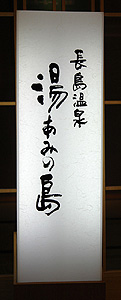 長島温泉
湯あみの島